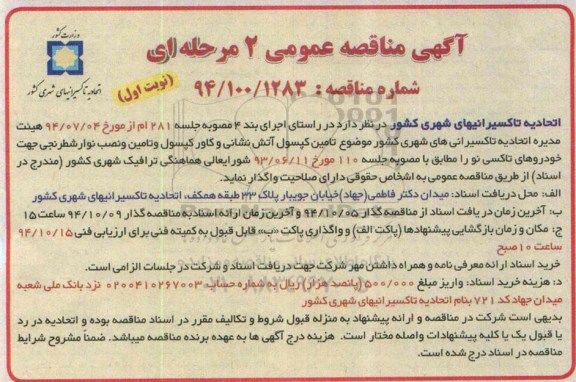 وزارت کشور
اتحادیه تاکسیرانیهای شهری کشور
آگهی مناقصه عمومی ۲ مرحله ای
شماره مناقصه : ۹۴/۱۰۰/۱۲۸۳
(نوبت اول)
اتحادیه تاکسیرانیهای شهری کشور در نظر دارد در راستای اجرای بند ۴ مصوبه جلسه ۲۸۱ ام از مورخ ۹۴/۰۷/۰۴ هیئت
مدیره اتحادیه تاکسیرانی های شهری کشور موضوع تامین کپسول آتش نشانی و کاور کپسول وتامین ونصب نوارشطرنجی جهت
خودروهای تاکسی نو را مطابق با مصوبه جلسه ۱۱۰ مورخ ۹۳/۰۶/۱۱ شورایعالی هماهنگی ترافیک شهری کشور (مندرج در
اسناد) از طریق مناقصه عمومی به اشخاص حقوقی دارای صلاحیت واگذار نماید.
الف: محل دریافت اسناد: میدان دکتر فاطمی(جهاد)خیابان جویبار پلاک ۳۳ طبقه همکف، اتحادیه تاکسیرانیهای شهری کشور
ب: آخرین زمان دریافت اسناد از مناقصه گذار ۹۴/۱۰/۰۵ و آخرین زمان ارائه اسنادبه مناقصه گذار ۹۴/۱۰/۰۹ ساعت ۱۵
ج: مکان و زمان بازگشایی پیشنهادها (پاکت الف) و واگذاری پاکت «ب» قابل قبول به کمیته فنی برای ارزیابی فنی ۹۴/۱۰/۱۵
ساعت ۱۰ صبح
خرید اسناد ارائه معرفی نامه و همراه داشتن مهر شرکت جهت دریافت اسناد و شرکت در جلسات الزامی است.
د: هزینه خرید اسناد: واریز مبلغ ۵۰۰/۰۰۰ (پانصد هزار) ریال به شماره حساب ۰۲۰۰۴۱۰۲۶۷۰۰۳ نزد بانک ملی شعبه
میدان جهاد کد ۷۲۱ بنام اتحادیه تاکسیرانیهای شهری کشور
بدیهی است شرکت در مناقصه و ارائه پیشنهاد به منزله قبول شروط و تکالیف مقرر در اسناد مناقصه بوده و اتحادیه در رد
یا قبول یک یا کلیه پیشنهادات واصله مختار است. هزینه درج آگهی ها به عهده برنده مناقصه میباشد. ضمناً مشروح شرایط
مناقصه در اسناد درج شده است.